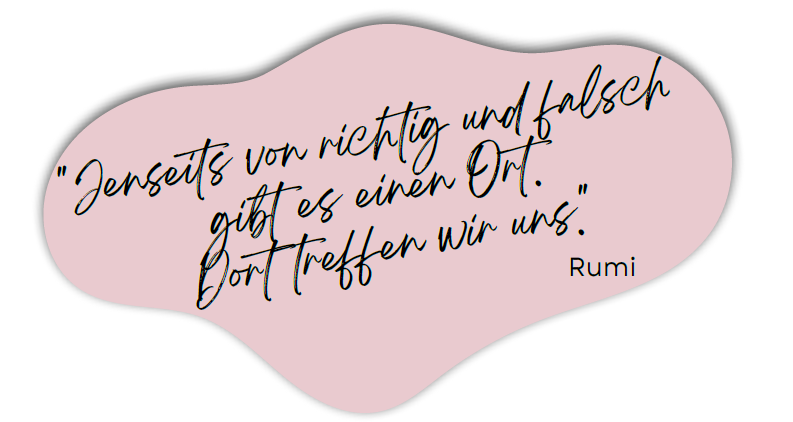 "Jenseits von richtig und falsch
gibt es einen Ort.
Dort treffen wir uns."
Rumi